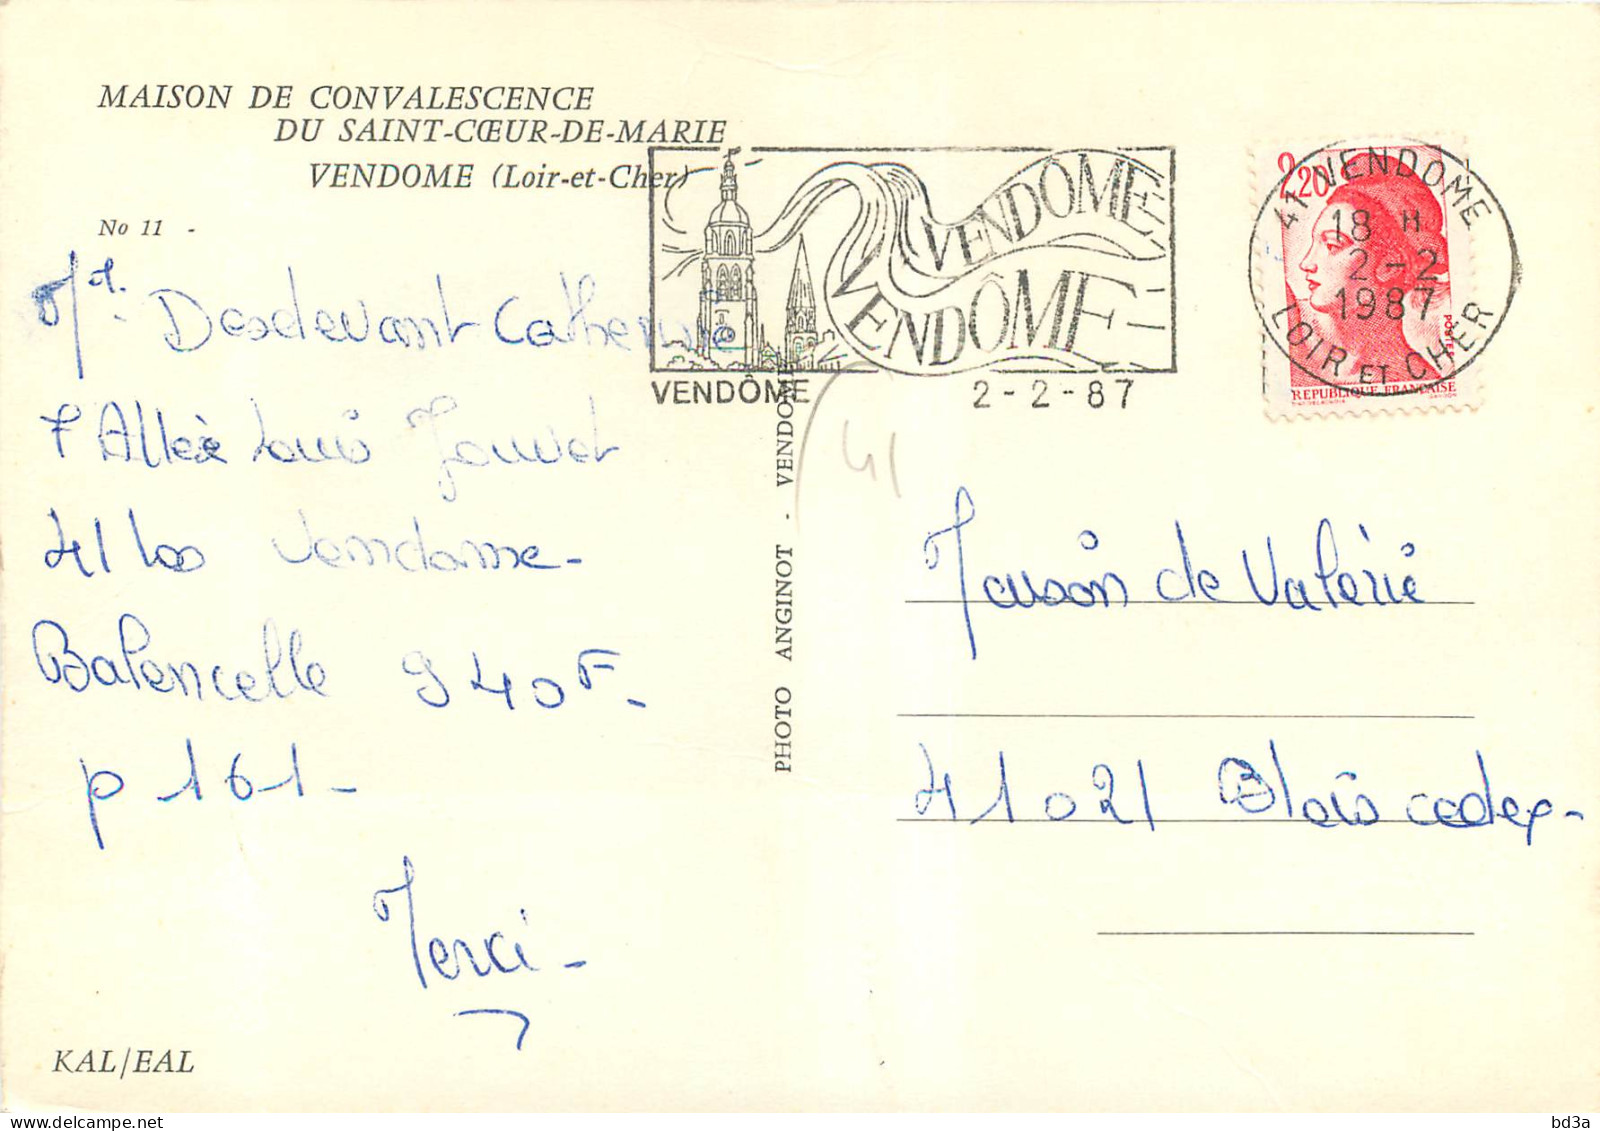 MAISON DE CONVALESCENCE
DU SAINT-CŒUR-DE-MARIE
VENDOME (Loir-et-Cher)
No 11 -
Desdevant Catherine
7 Allée Louis Jouvet
41100 Vendome-
Balencelle 940F-
p 161-
Merci-
KAL/EAL
PHOTO ANGINOT - VENDOME
VENDÔME
VENDÔME
VENDÔME
2-2-87
41 VENDOME
18 H
2-2
1987
LOIR ET CHER
2,20
POSTES
REPUBLIQUE FRANÇAISE
41
Maison de Valérie
41021 Blois cedex-
bd3a